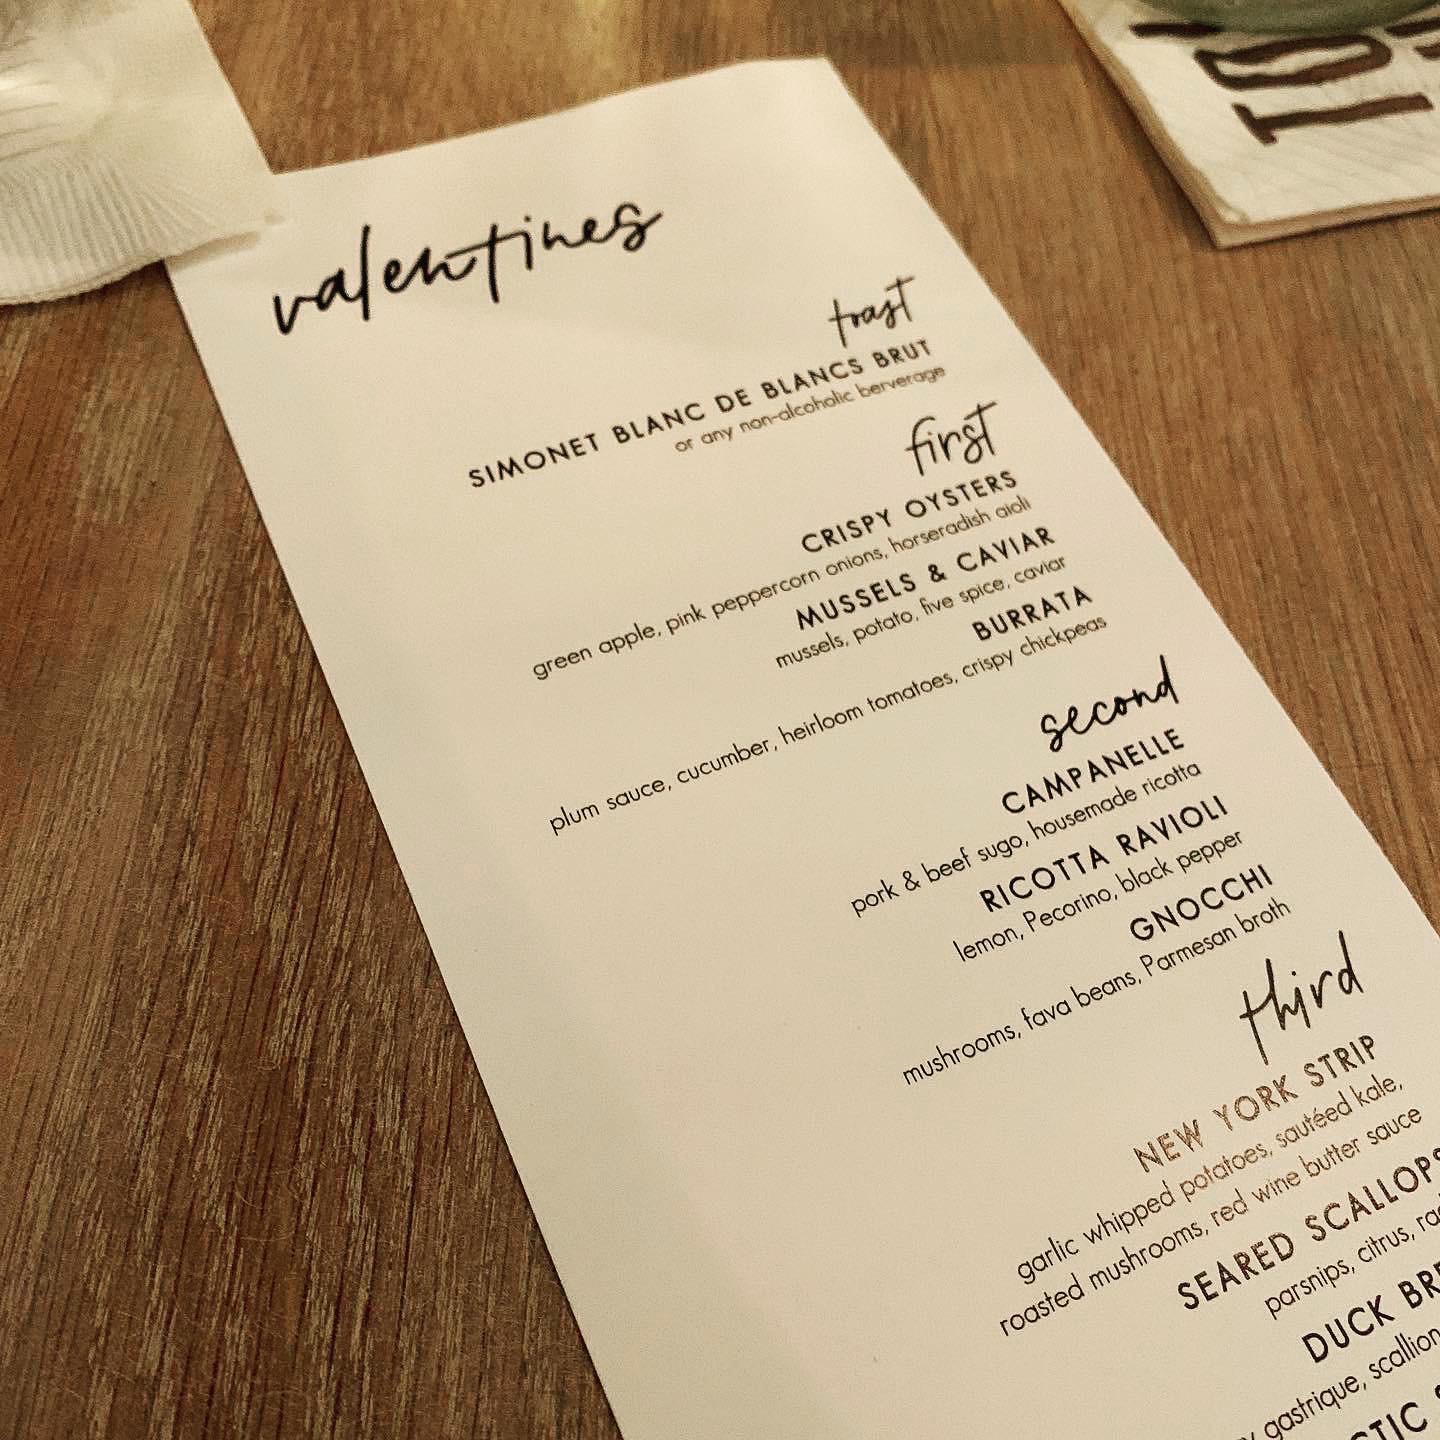 valentines
toast
SIMONET BLANC DE BLANCS BRUT
or any non-alcoholic berverage
first
CRISPY OYSTERS
green apple, pink peppercorn onions, horseradish aioli
MUSSELS & CAVIAR
mussels, potato, five spice, caviar
BURRATA
plum sauce, cucumber, heirloom tomatoes, crispy chickpeas
second
CAMPANELLE
pork & beef sugo, housemade ricotta
RICOTTA RAVIOLI
lemon, Pecorino, black pepper
GNOCCHI
mushrooms, fava beans, Parmesan broth
third
NEW YORK STRIP
garlic whipped potatoes, sautéed kale,
roasted mushrooms, red wine butter sauce
SEARED SCALLOPS
parsnips, citrus,
DUCK
gastrique, scallion